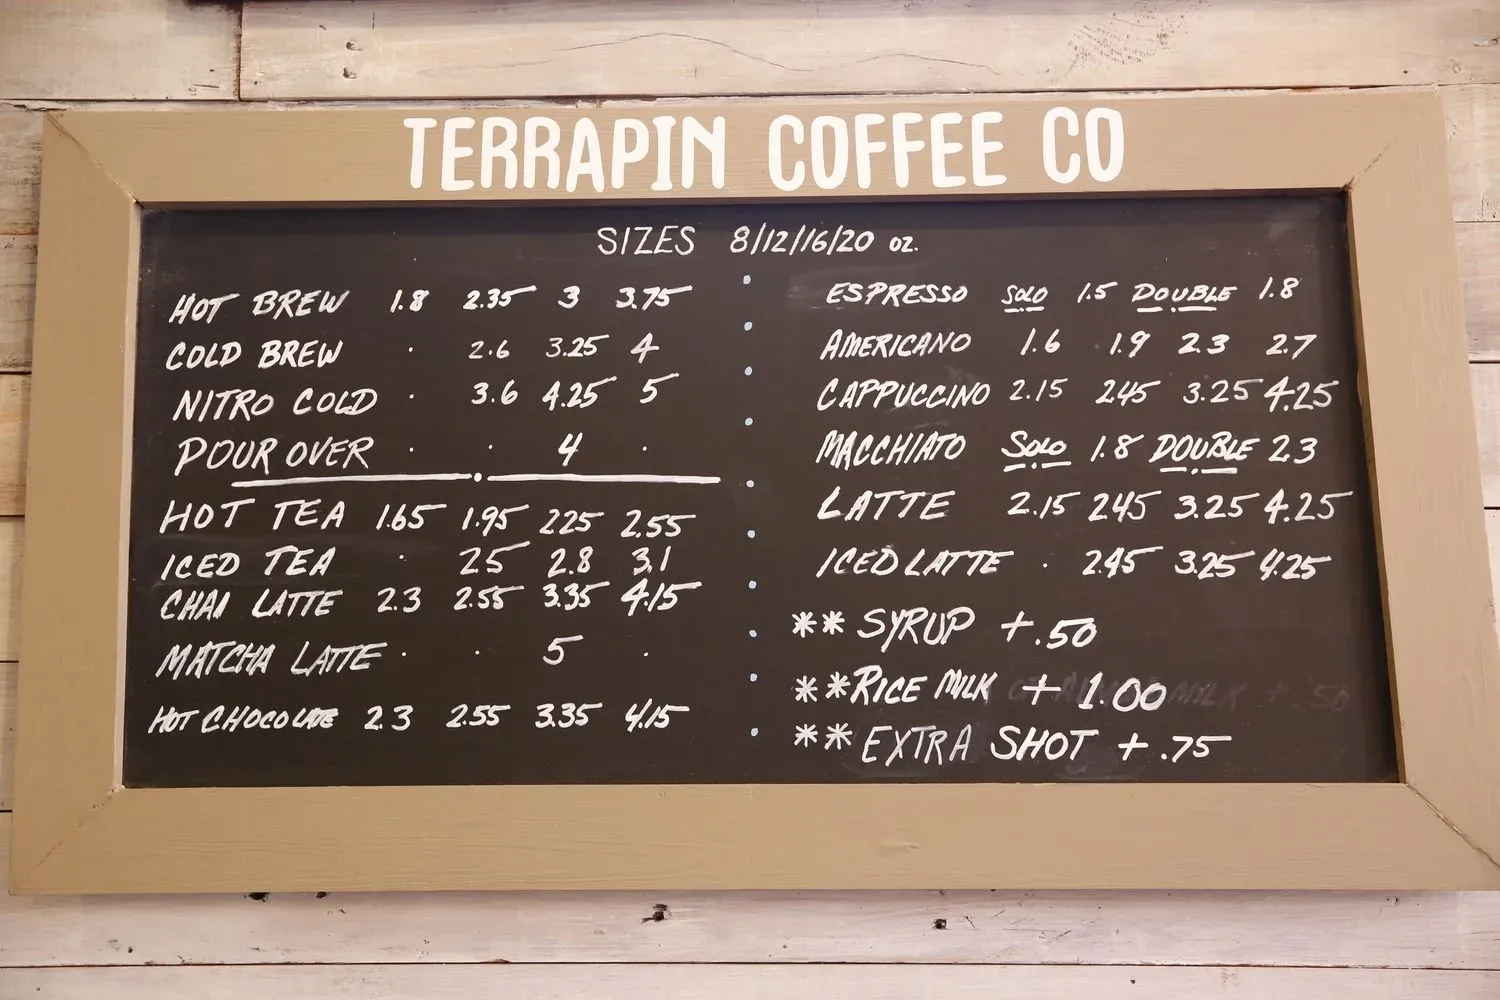 TERRAPIN COFFEE CO
SIZES 8/12/16/20 oz.
HOT BREW 1.8 2.35 3 3.75
COLD BREW · 2.6 3.25 4
NITRO COLD · 3.6 4.25 5
POUR OVER · · 4 ·
HOT TEA 1.65 1.95 2.25 2.55
ICED TEA · 2.5 2.8 3.1
CHAI LATTE 2.3 2.55 3.35 4.15
MATCHA LATTE · · 5 ·
HOT CHOCOLATE 2.3 2.55 3.35 4.15
ESPRESSO SOLO 1.5 DOUBLE 1.8
AMERICANO 1.6 1.9 2.3 2.7
CAPPUCCINO 2.15 2.45 3.25 4.25
MACCHIATO SOLO 1.8 DOUBLE 2.3
LATTE 2.15 2.45 3.25 4.25
ICED LATTE · 2.45 3.25 4.25
** SYRUP +.50
** RICE MILK + 1.00
** EXTRA SHOT + .75